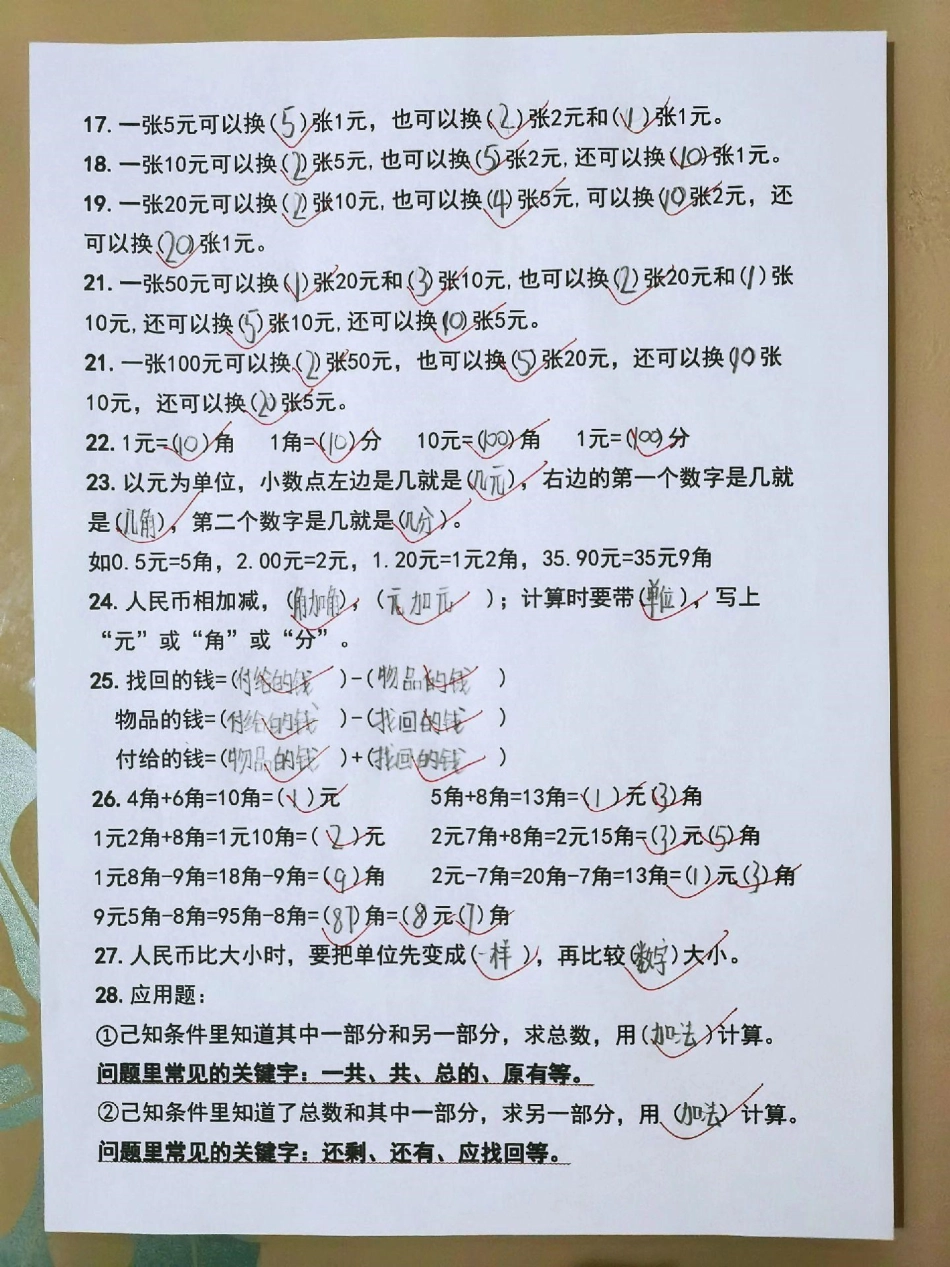 17.一张5元可以换(5)张1元，也可以换(2)张2元和(1)张1元。
18.一张10元可以换(2)张5元,也可以换(5)张2元,还可以换(10)张1元。
19.一张20元可以换(2)张10元,也可以换(4)张5元,可以换(10)张2元，还
可以换(20)张1元。
21.一张50元可以换(1)张20元和(3)张10元,也可以换(2)张20元和(1)张
10元,还可以换(5)张10元,还可以换(10)张5元。
21.一张100元可以换(2)张50元，也可以换(5)张20元，还可以换(10)张
10元，还可以换(20)张5元。
22.1元=(10)角 1角=(10)分 10元=(100)角 1元=(100)分
23.以元为单位，小数点左边是几就是(几元)，右边的第一个数字是几就
是(几角)，第二个数字是几就是(几分)。
如0.5元=5角，2.00元=2元，1.20元=1元2角，35.90元=35元9角
24.人民币相加减，(角加角)，(元加元)；计算时要带(单位)，写上
“元”或“角”或“分”。
25.找回的钱=(付给的钱)-(物品的钱)
物品的钱=(付给的钱)-(找回的钱)
付给的钱=(物品的钱)+(找回的钱)
26.4角+6角=10角=(1)元 5角+8角=13角=(1)元(3)角
1元2角+8角=1元10角=(2)元 2元7角+8角=2元15角=(3)元(5)角
1元8角-9角=18角-9角=(9)角 2元-7角=20角-7角=13角=(1)元(3)角
9元5角-8角=95角-8角=(87)角=(8)元(7)角
27.人民币比大小时，要把单位先变成(一样)，再比较(数字)大小。
28.应用题：
①己知条件里知道其中一部分和另一部分，求总数，用(加法)计算。
问题里常见的关键字：一共、共、总的、原有等。
②己知条件里知道了总数和其中一部分，求另一部分，用(加法)计算。
问题里常见的关键字：还剩、还有、应找回等。